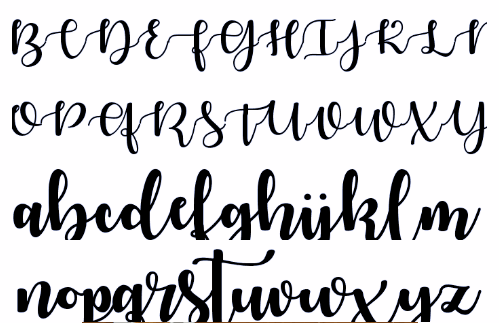 BCDEFGHIJKLM
OPQRSTUVWXY
abcdefghijklm
nopqrstuvwxyz